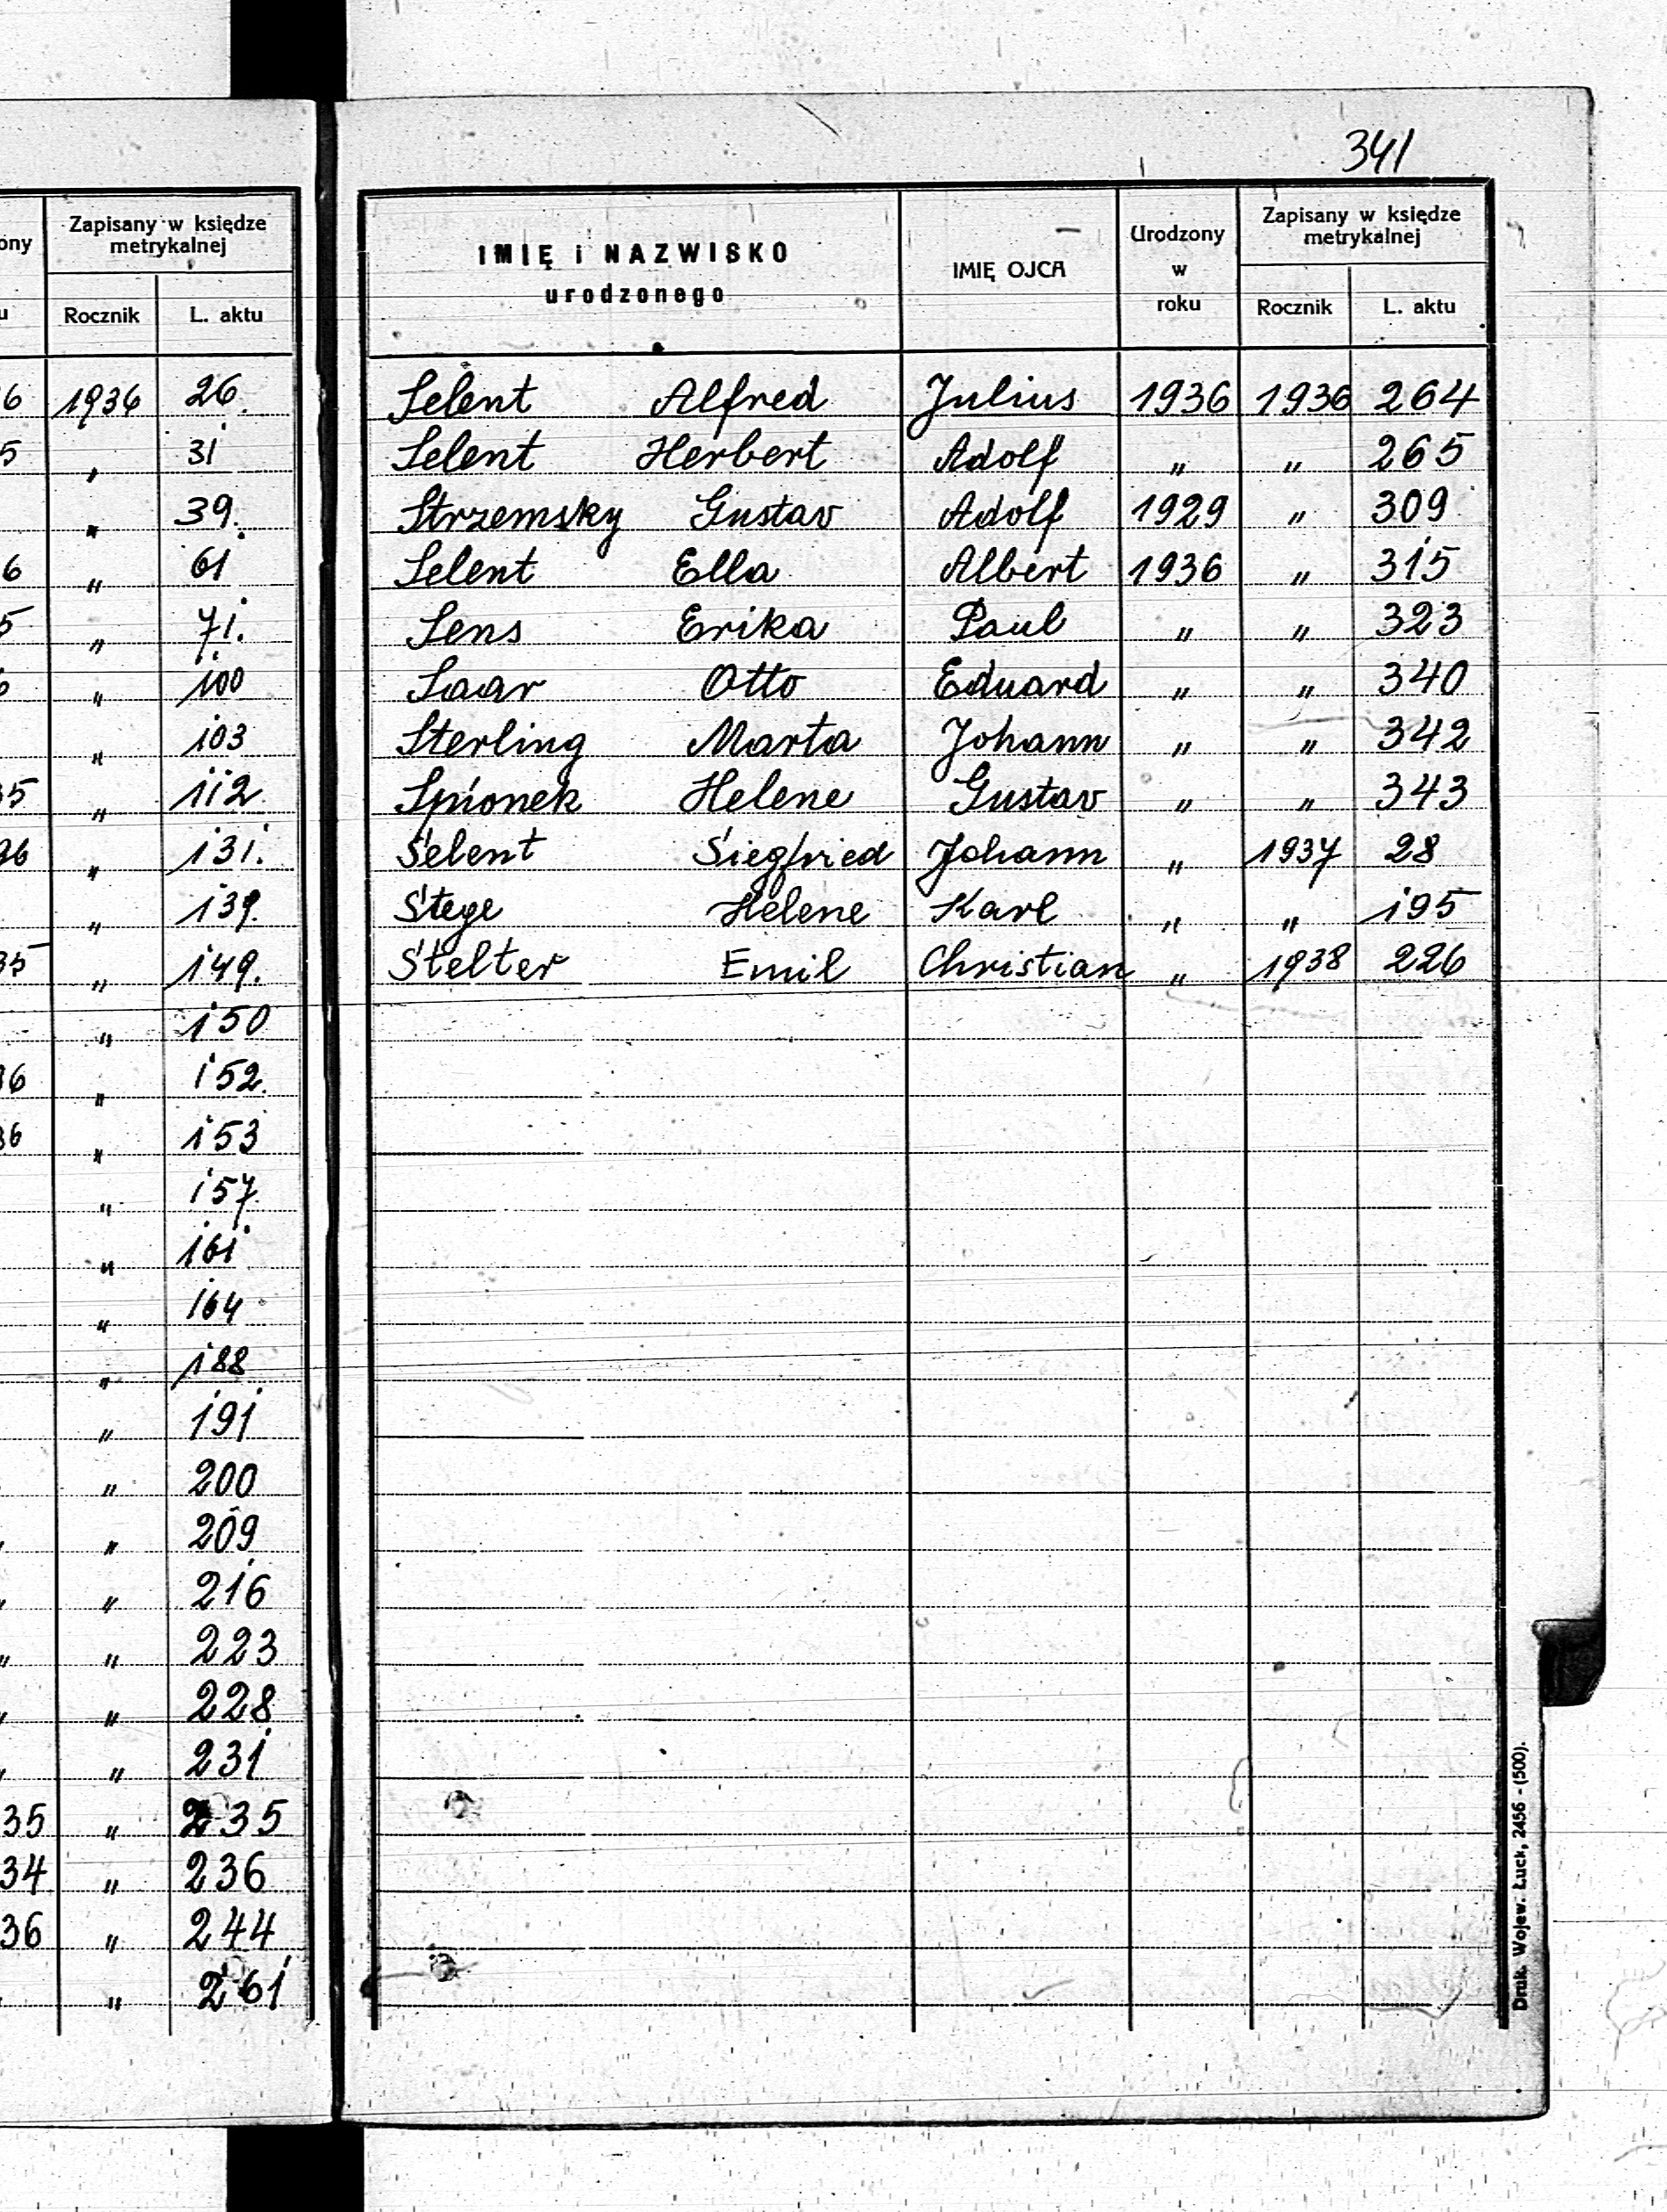 ony Zapisany w księdze metrykalnej
u Rocznik L. aktu
6 1936 26.
5 " 31
" 39.
6 " 61
5 " 71.
" 100
" 103
35 " 112
36 " 131.
" 139.
35 " 149.
" 150
36 " 152.
36 " 153
" 157.
" 161
" 164
" 188
" 191
" 200
" " 209
" " 216
" " 223
" " 228
" " 231
35 " 235
34 " 236
36 " 244
" " 261
341
IMIĘ i NAZWISKO urodzonego IMIĘ OJCA Urodzony w roku Zapisany w księdze metrykalnej
Rocznik L. aktu
Selent Alfred Julius 1936 1936 264
Selent Herbert Adolf " " 265
Strzemsky Gustav Adolf 1929 " 309
Selent Ella Albert 1936 " 315
Sens Erika Paul " " 323
Saar Otto Eduard " " 340
Sterling Marta Johann " " 342
Spionek Helene Gustav " " 343
Selent Siegfried Johann " 1937 28
Stege Helene Karl " " 195
Stelter Emil Christian " 1938 226
Druk. Wojew. Łuck, 2456 - (500).